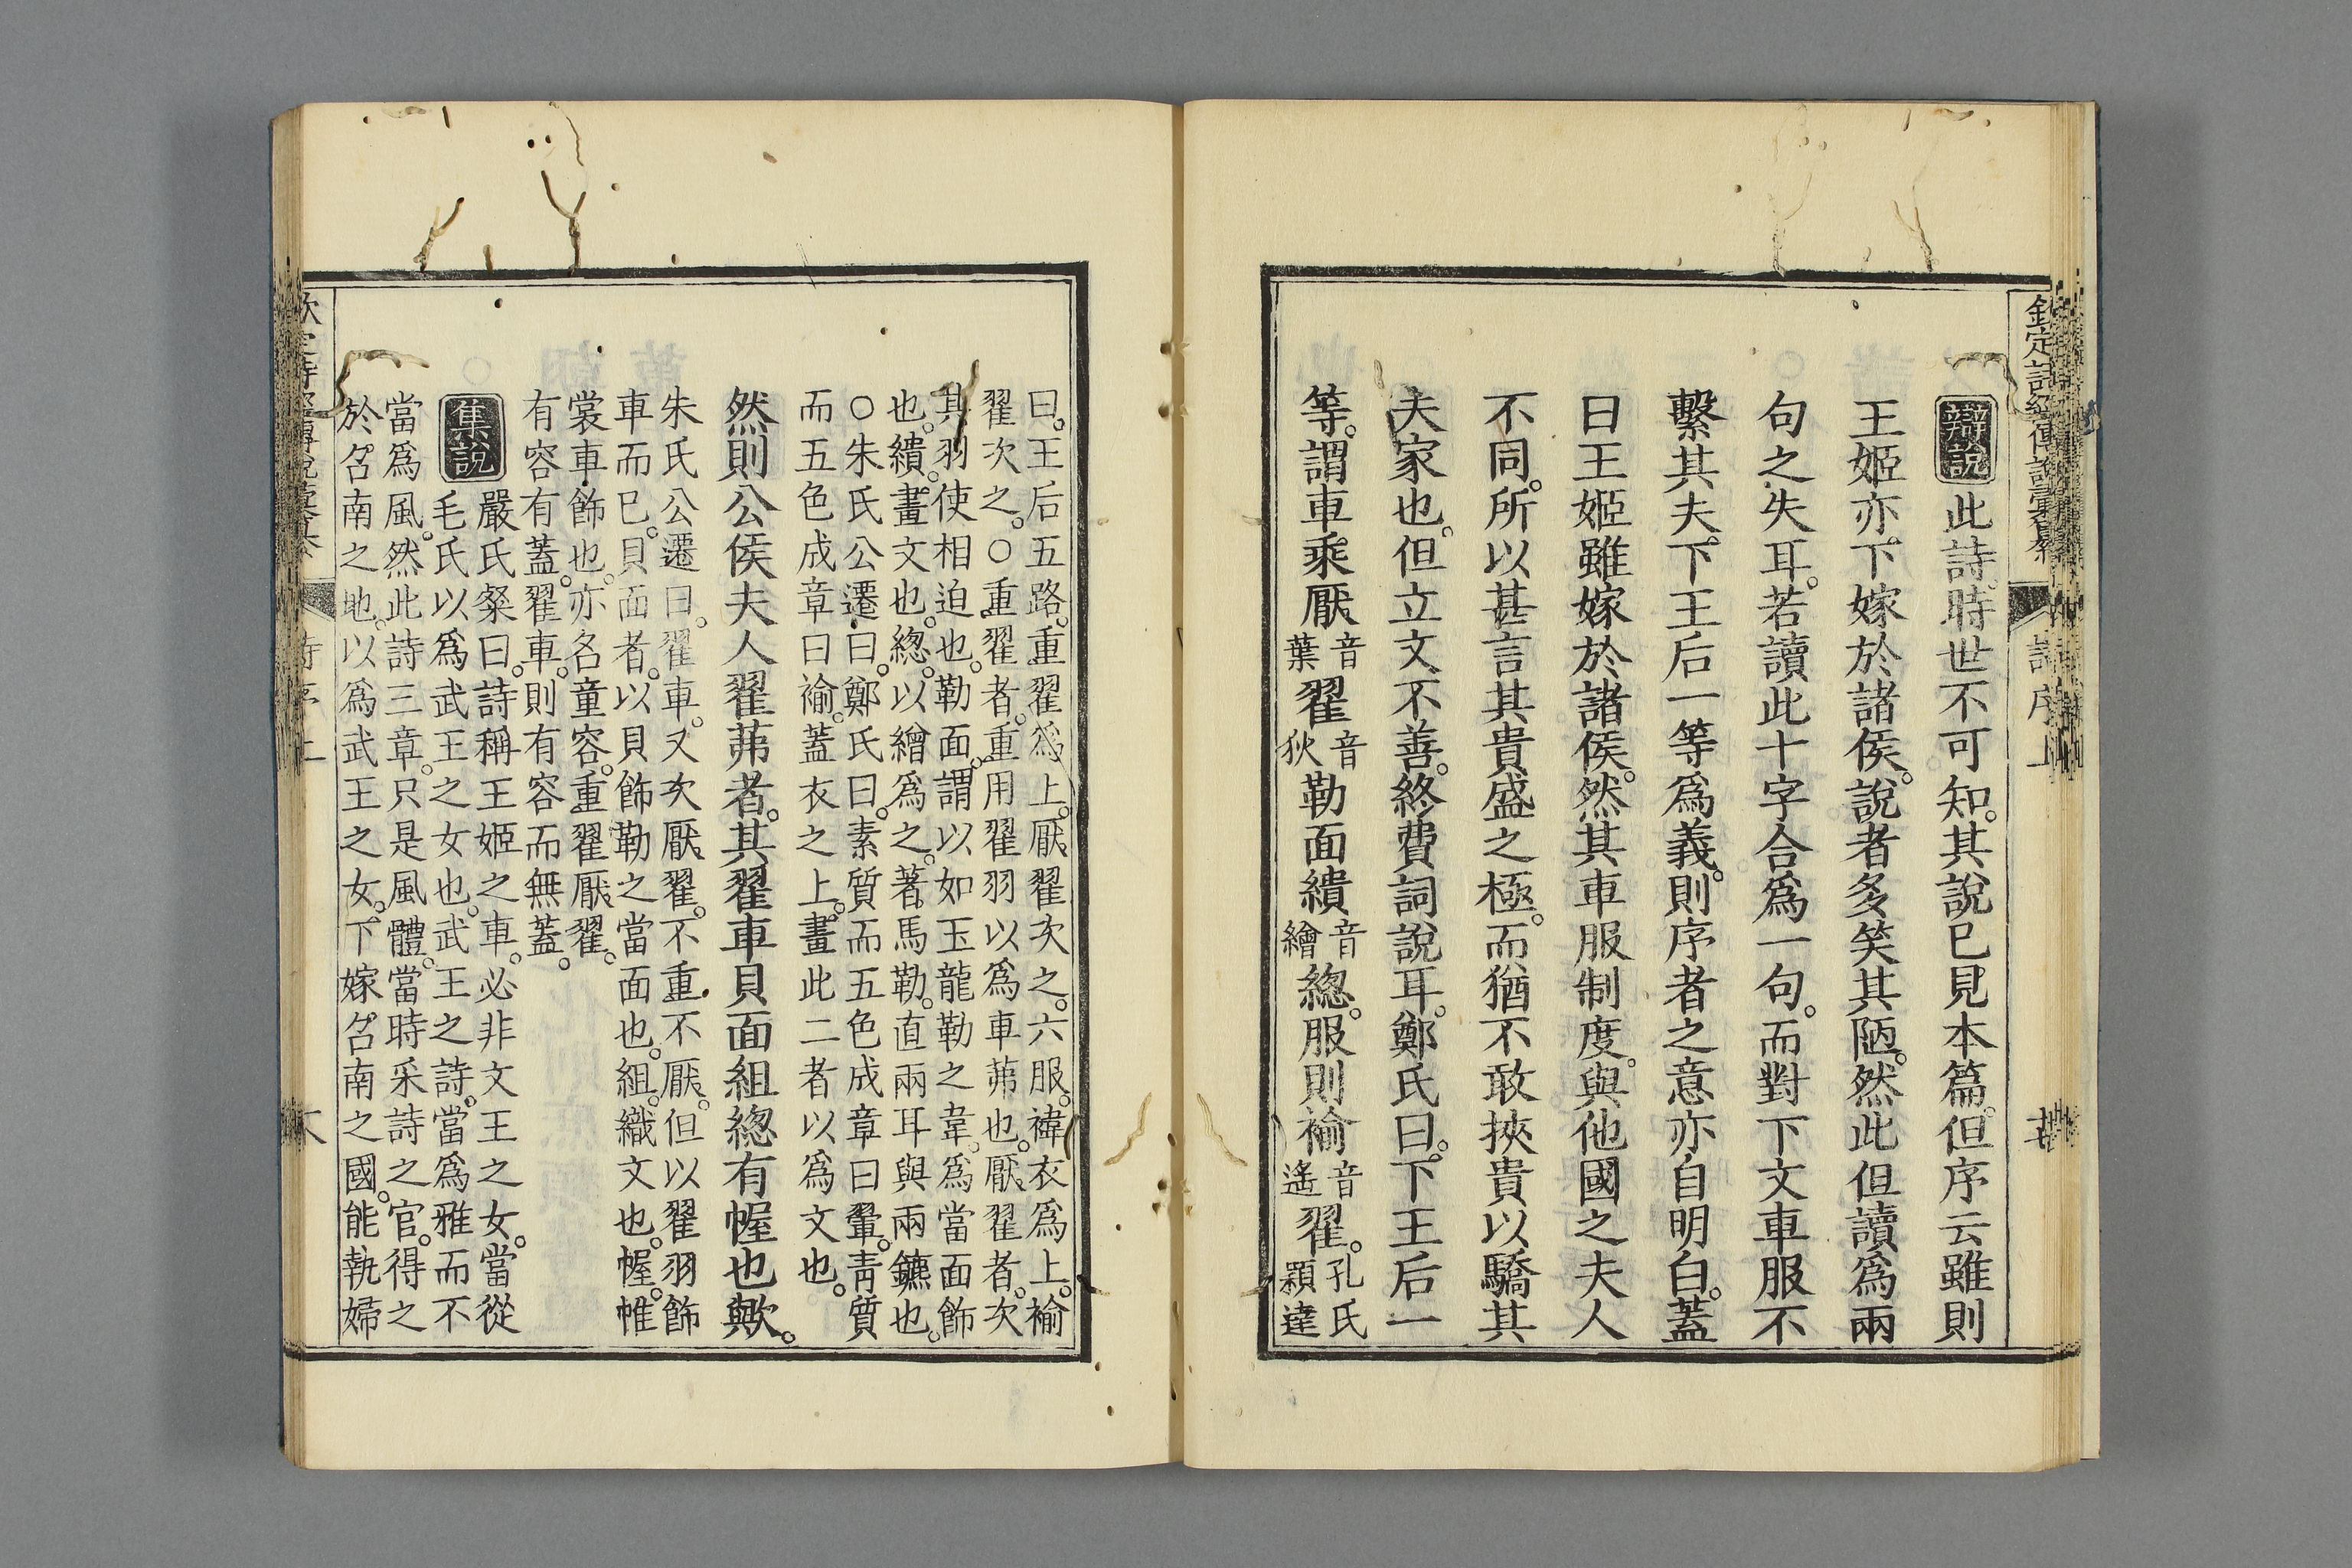 欽定詩經傳說彙纂
詩序上
辯說 此詩時世不可知。其說已見本篇。但序云雖則
王姬亦下嫁於諸侯。說者多笑其陋。然此但讀為兩
句之失耳。若讀此十字合為一句。而對下文車服不
繫其夫。下王后一等為義。則序者之意亦自明白。蓋
曰王姬雖嫁於諸侯。然其車服制度。與他國之夫人
不同。所以甚言其貴盛之極。而猶不敢挾貴以驕其
夫家也。但立文不善。終費詞說耳。鄭氏曰。下王后一
等。謂車乘厭音葉翟音狄勒面繢音繪緫。服則褕音遙翟。孔氏穎達
曰。王后五路。重翟為上。厭翟次之。六服。褘衣為上。褕
翟次之。○重翟者。重用翟羽以為車茀也。厭翟者。次
其羽。使相迫也。勒面。謂以如玉龍勒之韋。為當面飾
也。繢。畫文也。緫。以繒為之。著馬勒。直兩耳與兩鑣也。
○朱氏公遷曰。鄭氏曰。素質而五色成章曰翬。青質
而五色成章曰褕。蓋衣之上。畫此二者以為文也。
然則公侯夫人翟茀者。其翟車貝面組緫有幄也歟。
朱氏公遷曰。翟車。又次厭翟。不重不厭。但以翟羽飾
車而已。貝面者。以貝飾勒之當面也。組。織文也。幄。帷
裳車飾也。亦名童容。重翟厭翟。
有容有蓋。翟車。則有容而無蓋。
集說 嚴氏粲曰。詩稱王姬之車。必非文王之女。當從
毛氏以為武王之女也。武王之詩。當為雅而不
當為風。然此詩三章。只是風體。當時采詩之官。得之
於召南之地。以為武王之女。下嫁召南之國。能執婦